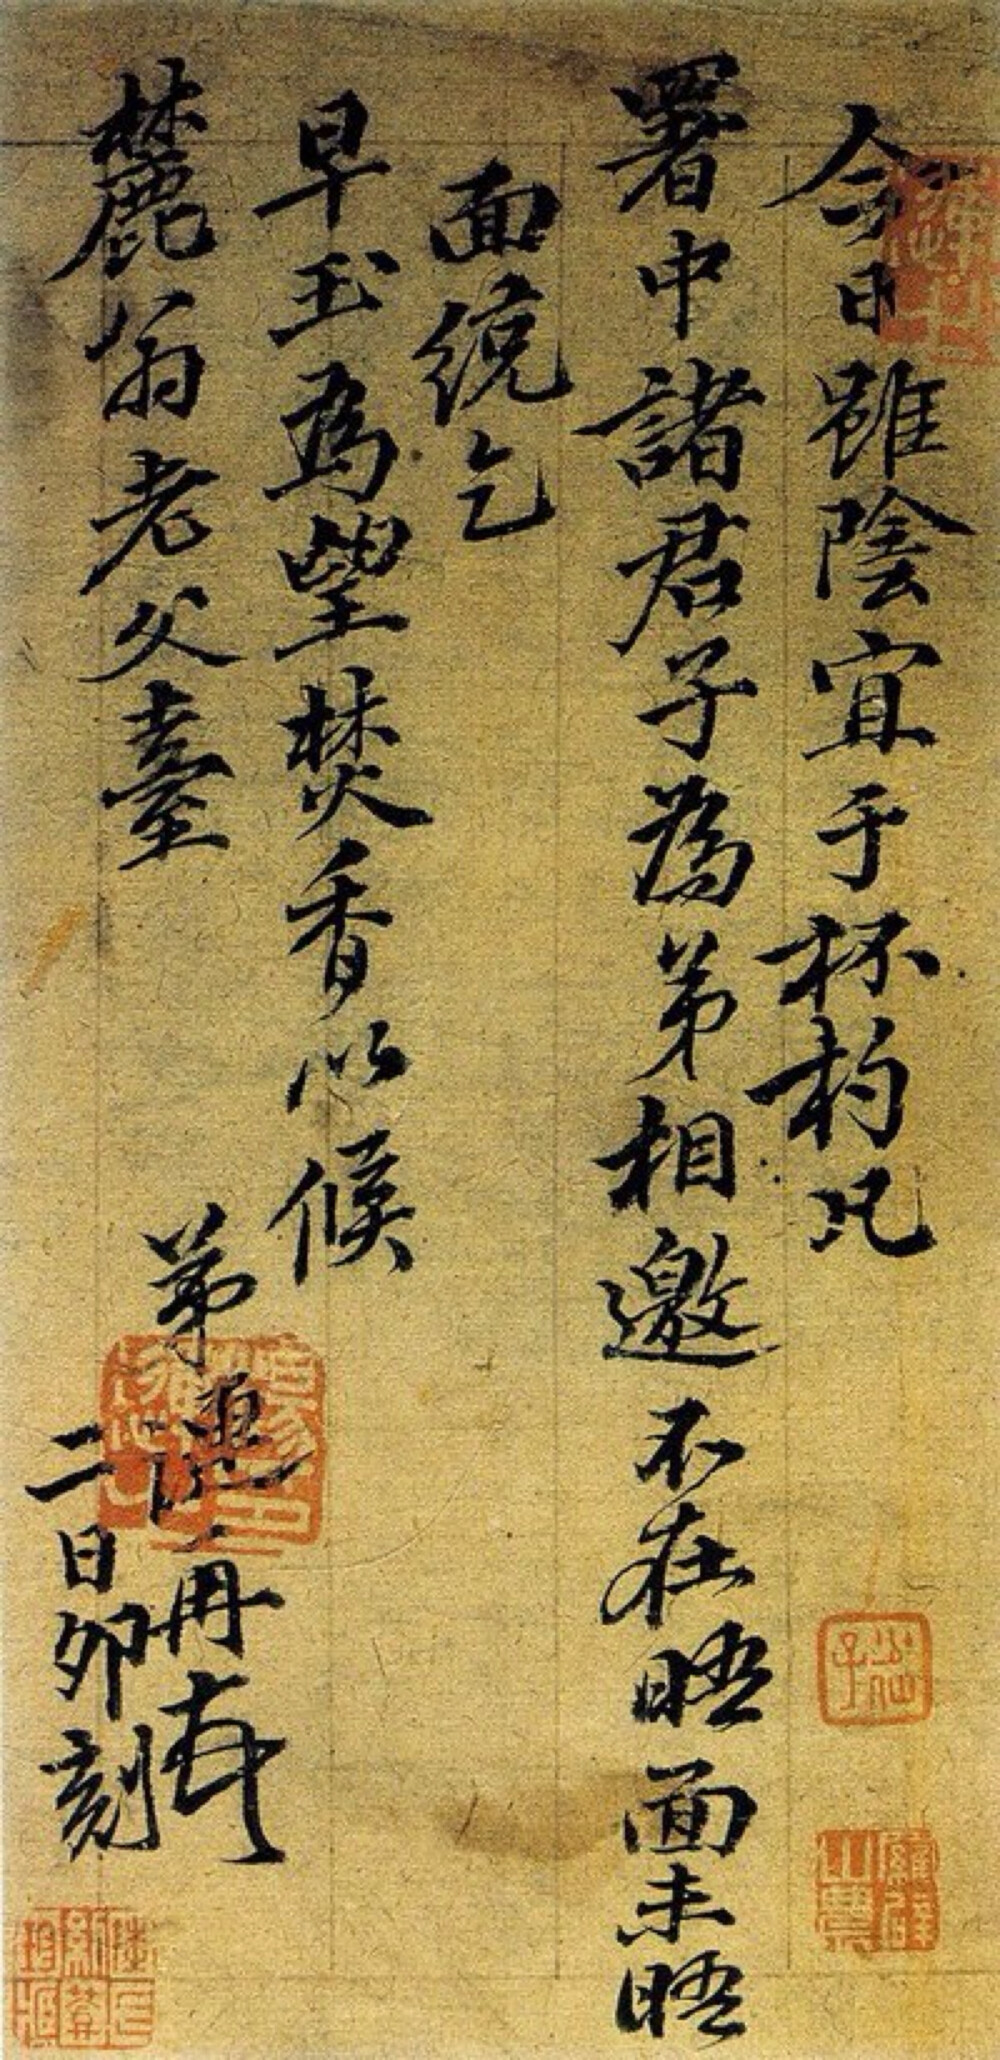 今日雖陰宜于杯杓凡
署中諸君子為弟相邀不在晤面未晤
面統乞
早玉為望焚香以候
麓翁老父臺
弟連冉
二日卯刻